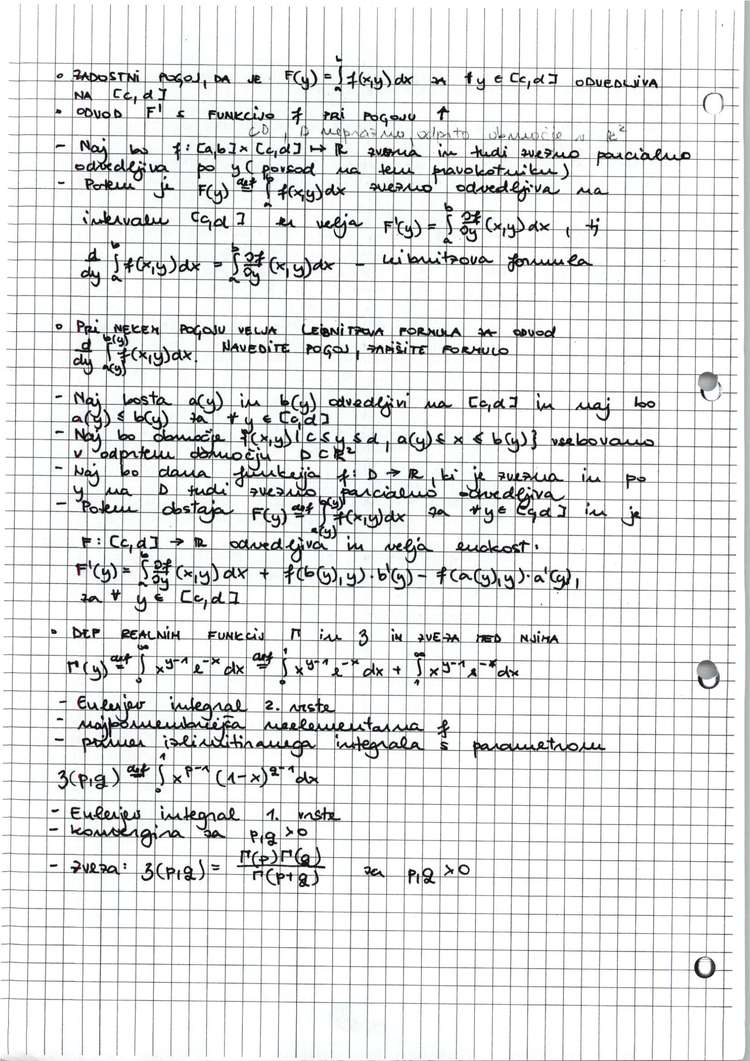 • ZADOSTNI POGOJ, DA JE F(y) = ∫_a^b f(x,y) dx ZA ∀y ∈ [c,d] ODVEDLJIVA
NA [c,d]
• ODVOD F' S FUNKCIJO f PRI POGOJU ↑
D neprazno, odprto območje v R²
- Naj bo f: [a,b] × [c,d] ↦ R zvezna in tudi zvezno parcialno
odvedljiva po y (povsod na tem pravokotniku)
- Potem je F(y) def= ∫_a^b f(x,y) dx zvezno odvedljiva na
intervalu [c,d] in velja F'(y) = ∫_a^b ∂f/∂y (x,y) dx, tj
d/dy ∫_a^b f(x,y) dx = ∫_a^b ∂f/∂y (x,y) dx - Leibnitzova formula
• PRI NEKEM POGOJU VELJA LEIBNITZOVA FORMULA ZA ODVOD
d/dy ∫_{a(y)}^{b(y)} f(x,y) dx. NAVEDITE POGOJ, ZAPIŠITE FORMULO
- Naj bosta a(y) in b(y) odvedljivi na [c,d] in naj bo
a(y) ≤ b(y) za ∀ y ∈ [c,d]
- Naj bo območje {(x,y) | c ≤ y ≤ d, a(y) ≤ x ≤ b(y)} vsebovano
v odprtem območju D ⊂ R²
- Naj bo dana funkcija f: D → R, ki je zvezna in po
y na D tudi zvezno parcialno odvedljiva
- Potem obstaja F(y) def= ∫_{a(y)}^{b(y)} f(x,y) dx za ∀y ∈ [c,d] in je
F: [c,d] → R odvedljiva in velja enakost:
F'(y) = ∫_a^b ∂f/∂y (x,y) dx + f(b(y),y)·b'(y) - f(a(y),y)·a'(y),
za ∀ y ∈ [c,d]
• DEF REALNIH FUNKCIJ Γ in β IN ZVEZA MED NJIMA
Γ(y) def= ∫_0^∞ x^{y-1} e^{-x} dx def= ∫_0^1 x^{y-1} e^{-x} dx + ∫_1^∞ x^{y-1} e^{-x} dx
- Eulerjev integral 2. vrste
- najpomembnejša neelementarna f
- primer izlimitiranega integrala s parametrom
β(p,q) def= ∫_0^1 x^{p-1} (1-x)^{q-1} dx
- Eulerjev integral 1. vrste
- konvergira za p,q > 0
- zveza: β(p,q) = Γ(p)Γ(q) / Γ(p+q) za p,q > 0